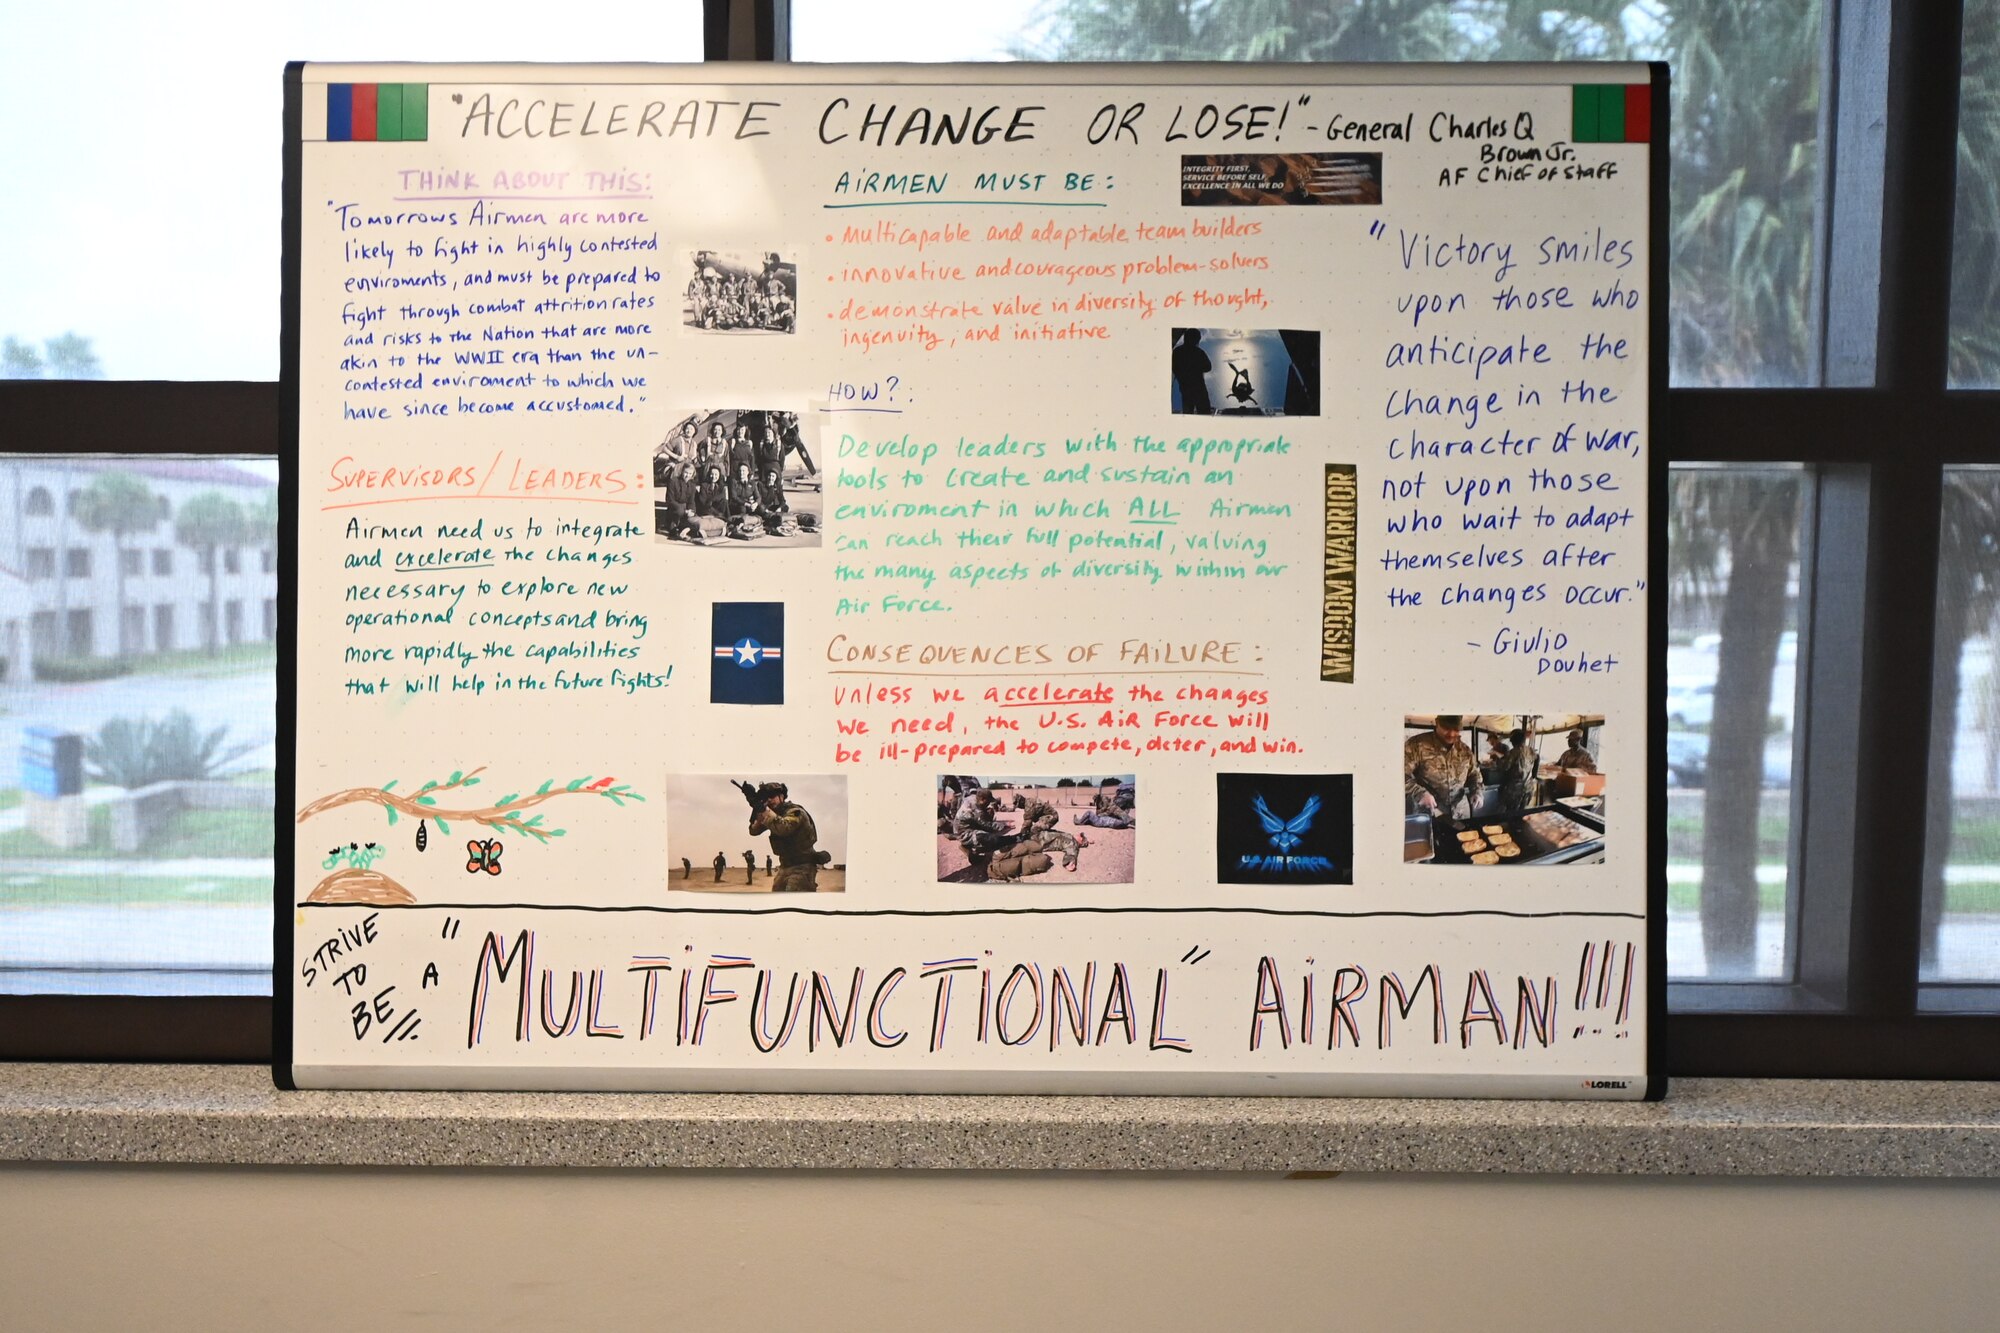 "ACCELERATE CHANGE OR LOSE!" - General Charles Q
Brown Jr.
AF Chief of Staff
THINK ABOUT THIS:
"Tomorrows Airmen are more
likely to fight in highly contested
enviroments, and must be prepared to
fight through combat attrition rates
and risks to the Nation that are more
akin to the WWII era than the un-
contested enviroment to which we
have since become accustomed."
SUPERVISORS/LEADERS:
Airmen need us to integrate
and excelerate the changes
necessary to explore new
operational concepts and bring
more rapidly the capabilities
that will help in the future fights!
AIRMEN MUST BE:
• Multicapable and adaptable team builders
• innovative and courageous problem-solvers
• demonstrate value in diversity of thought,
ingenuity, and initiative
HOW?:
Develop leaders with the appropriate
tools to create and sustain an
enviroment in which ALL Airmen
can reach their full potential, valuing
the many aspects of diversity within our
Air Force.
CONSEQUENCES OF FAILURE:
Unless we accelerate the changes
we need, the U.S. Air Force will
be ill-prepared to compete, deter, and win.
INTEGRITY FIRST,
SERVICE BEFORE SELF,
EXCELLENCE IN ALL WE DO
"Victory smiles
upon those who
anticipate the
change in the
character of war,
not upon those
who wait to adapt
themselves after
the changes occur."
- Giulio
Douhet
WISDOM WARRIOR
U.S. AIR FORCE
STRIVE
TO
BE
A "MULTIFUNCTIONAL" AIRMAN!!!
LORELL